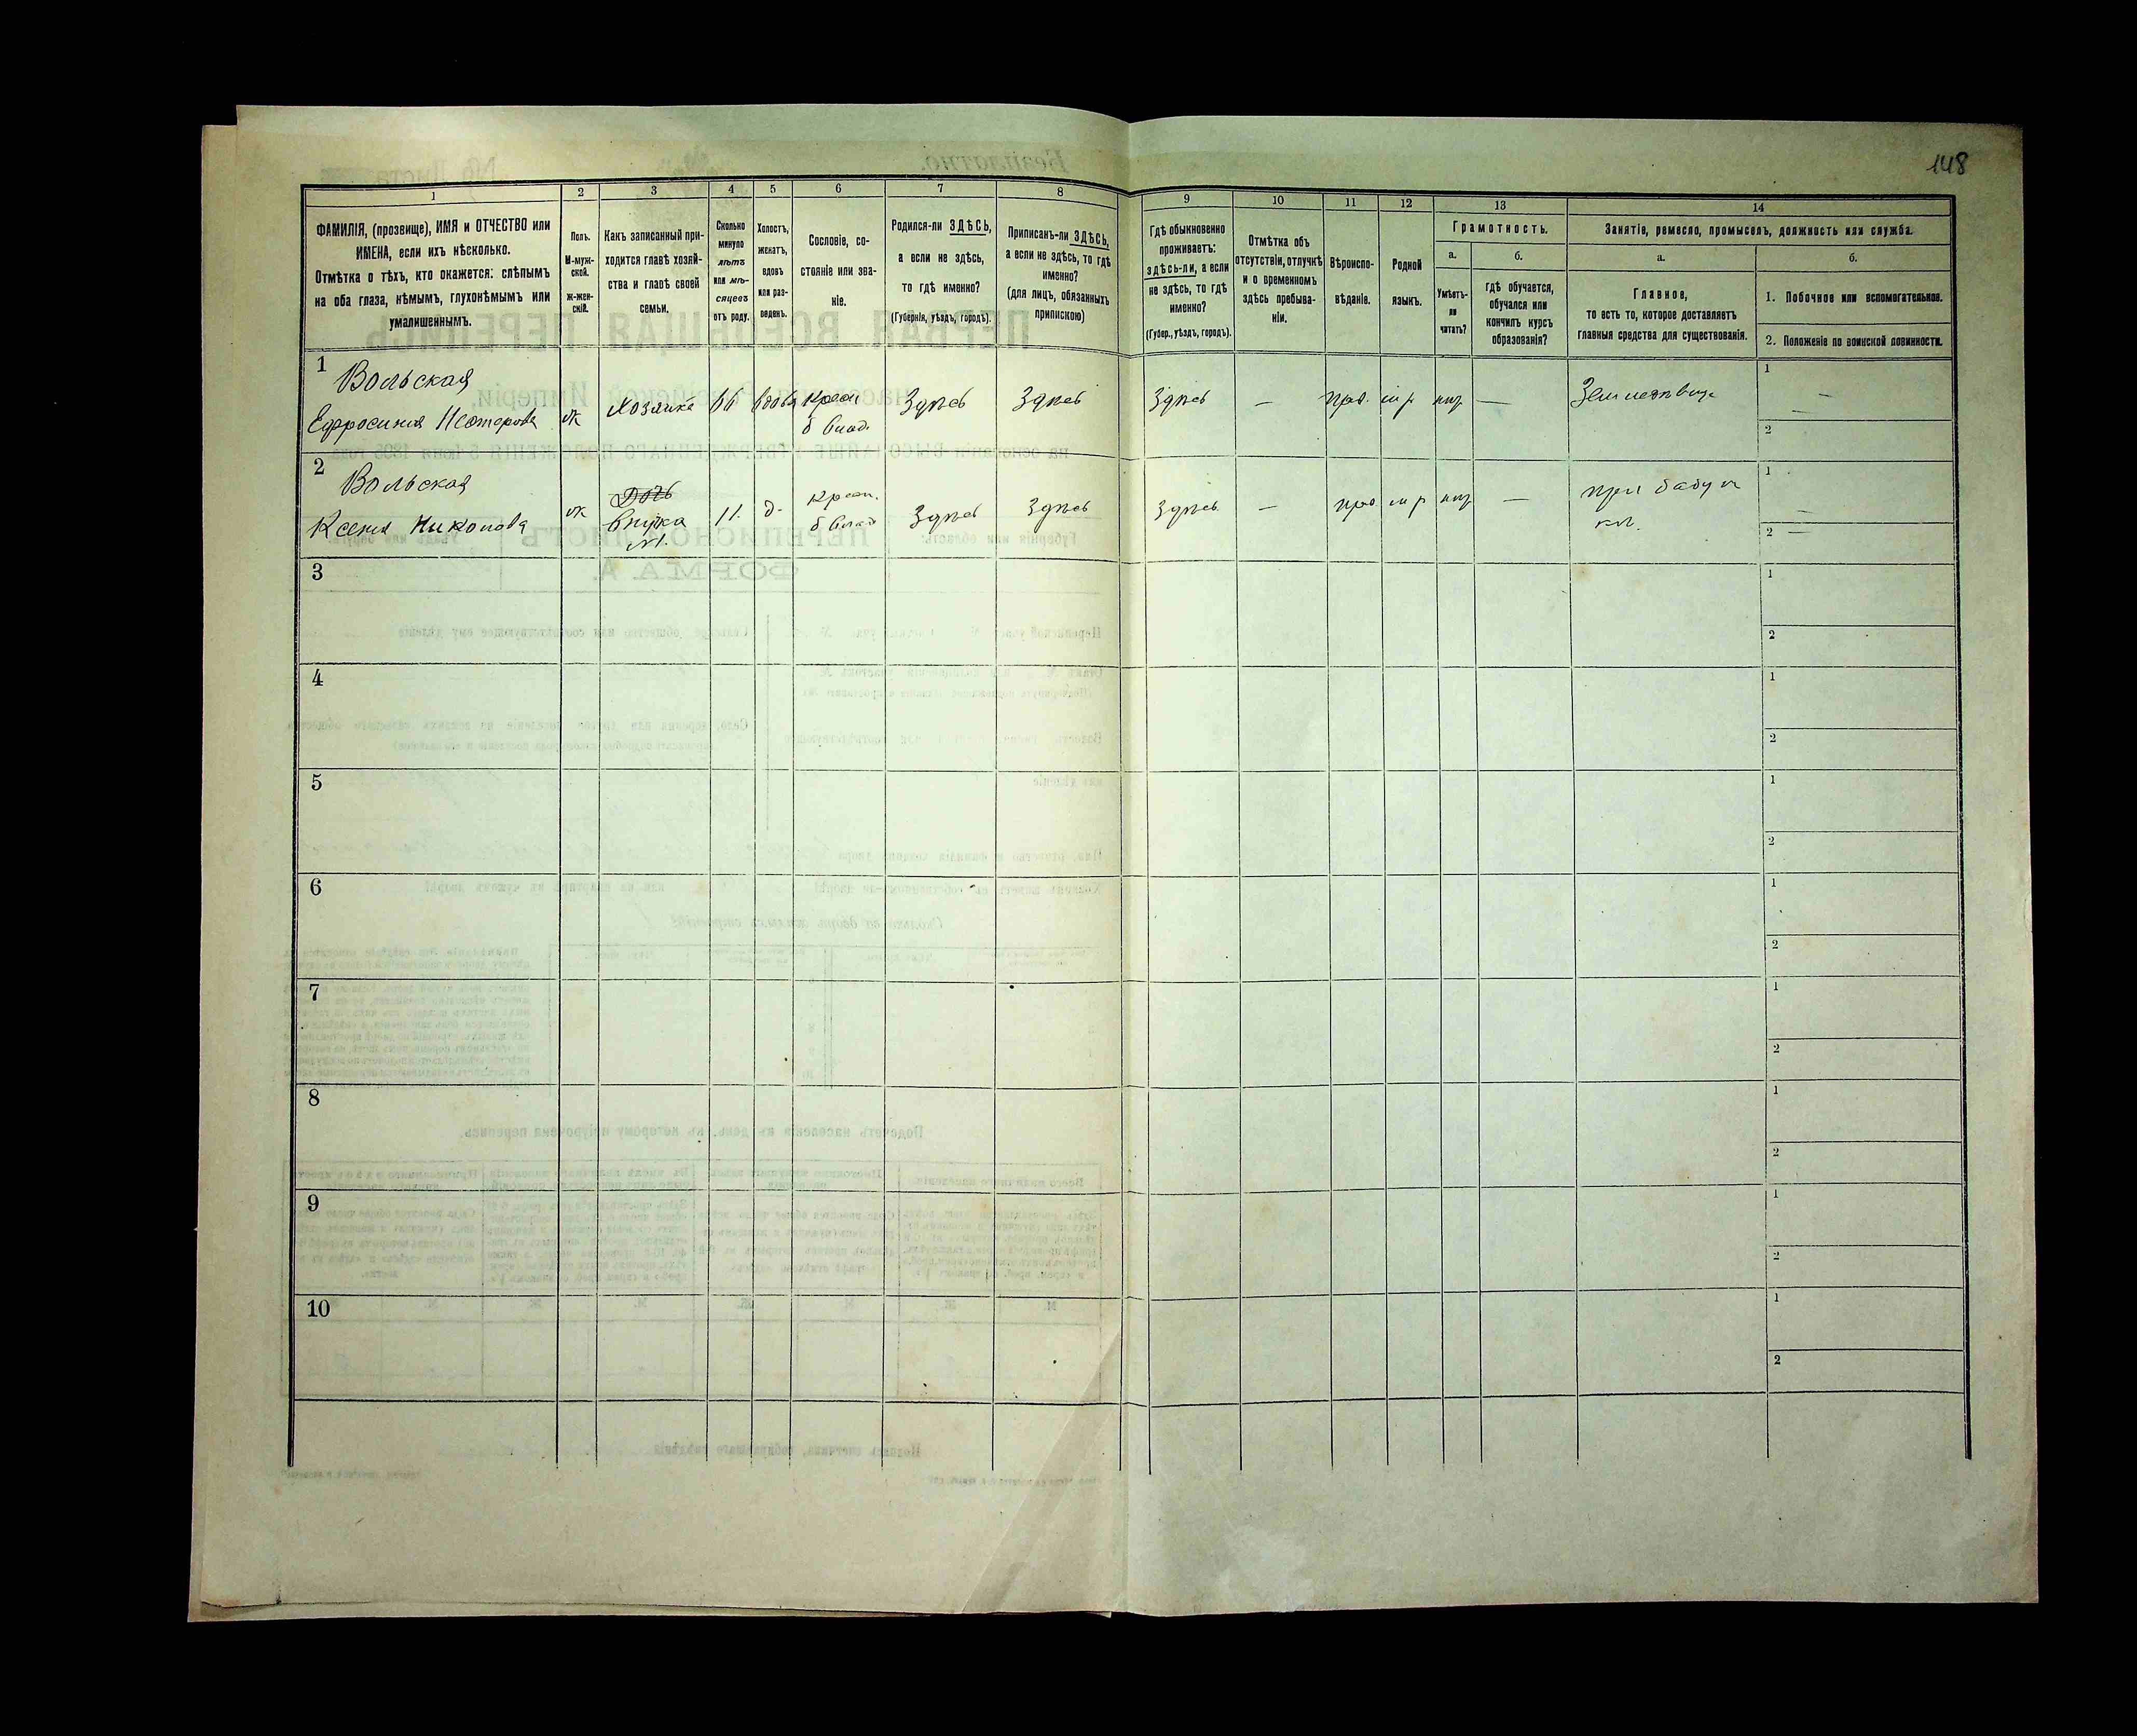 148
1
2
3
4
5
6
7
8
9
10
11
12
13
14
ФАМИЛІЯ, (прозвище), ИМЯ и ОТЧЕСТВО или
ИМЕНА, если ихъ нѣсколько.
Отмѣтка о тѣхъ, кто окажется: слѣпымъ
на оба глаза, нѣмымъ, глухонѣмымъ или
умалишеннымъ.
Полъ.
М-муж-
ской.
ж-жен-
скій.
Какъ записанный при-
ходится главѣ хозяй-
ства и главѣ своей
семьи.
Сколько
минуло
лѣтъ
или мѣ-
сяцевъ
отъ роду.
Холостъ,
женатъ,
вдовъ
или раз-
веденъ.
Сословіе, со-
стояніе или зва-
ніе.
Родился-ли ЗДѢСЬ,
а если не здѣсь,
то гдѣ именно?
(Губернія, уѣздъ, городъ).
Приписанъ-ли ЗДѢСЬ,
а если не здѣсь, то гдѣ
именно?
(для лицъ, обязанныхъ
припискою)
Гдѣ обыкновенно
проживаетъ:
здѣсь-ли, а если
не здѣсь, то гдѣ
именно?
(Губер., уѣздъ, городъ).
Отмѣтка объ
отсутствіи, отлучкѣ
и о временномъ
здѣсь пребыва-
ніи.
Вѣроиспо-
вѣданіе.
Родной
языкъ.
Грамотность.
а.
Умѣетъ-
ли
читать?
б.
гдѣ обучается,
обучался или
кончилъ курсъ
образованія?
Занятіе, ремесло, промыселъ, должность или служба.
а.
Главное,
то есть то, которое доставляетъ
главныя средства для существованія.
б.
1. Побочное или вспомогательное.
2. Положеніе по воинской повинности.
1
Вольская
Ефросинія Несторова
ж
Хозяйка
66
вдова
крест
б влад.
Здѣсь
Здѣсь
Здѣсь
—
прав.
м р
нѣт
—
1 —
2 —
2
Вольская
Ксенія Никонова
ж
Дочь
Внучка
11.
д.
крест.
б влад
Здѣсь
Здѣсь
Здѣсь
—
прав
м р
нѣт
—
при бабуш
кѣ.
1 —
2 —
3
1
2
4
1
2
5
1
2
6
1
2
7
1
2
8
1
2
9
1
2
10
1
2